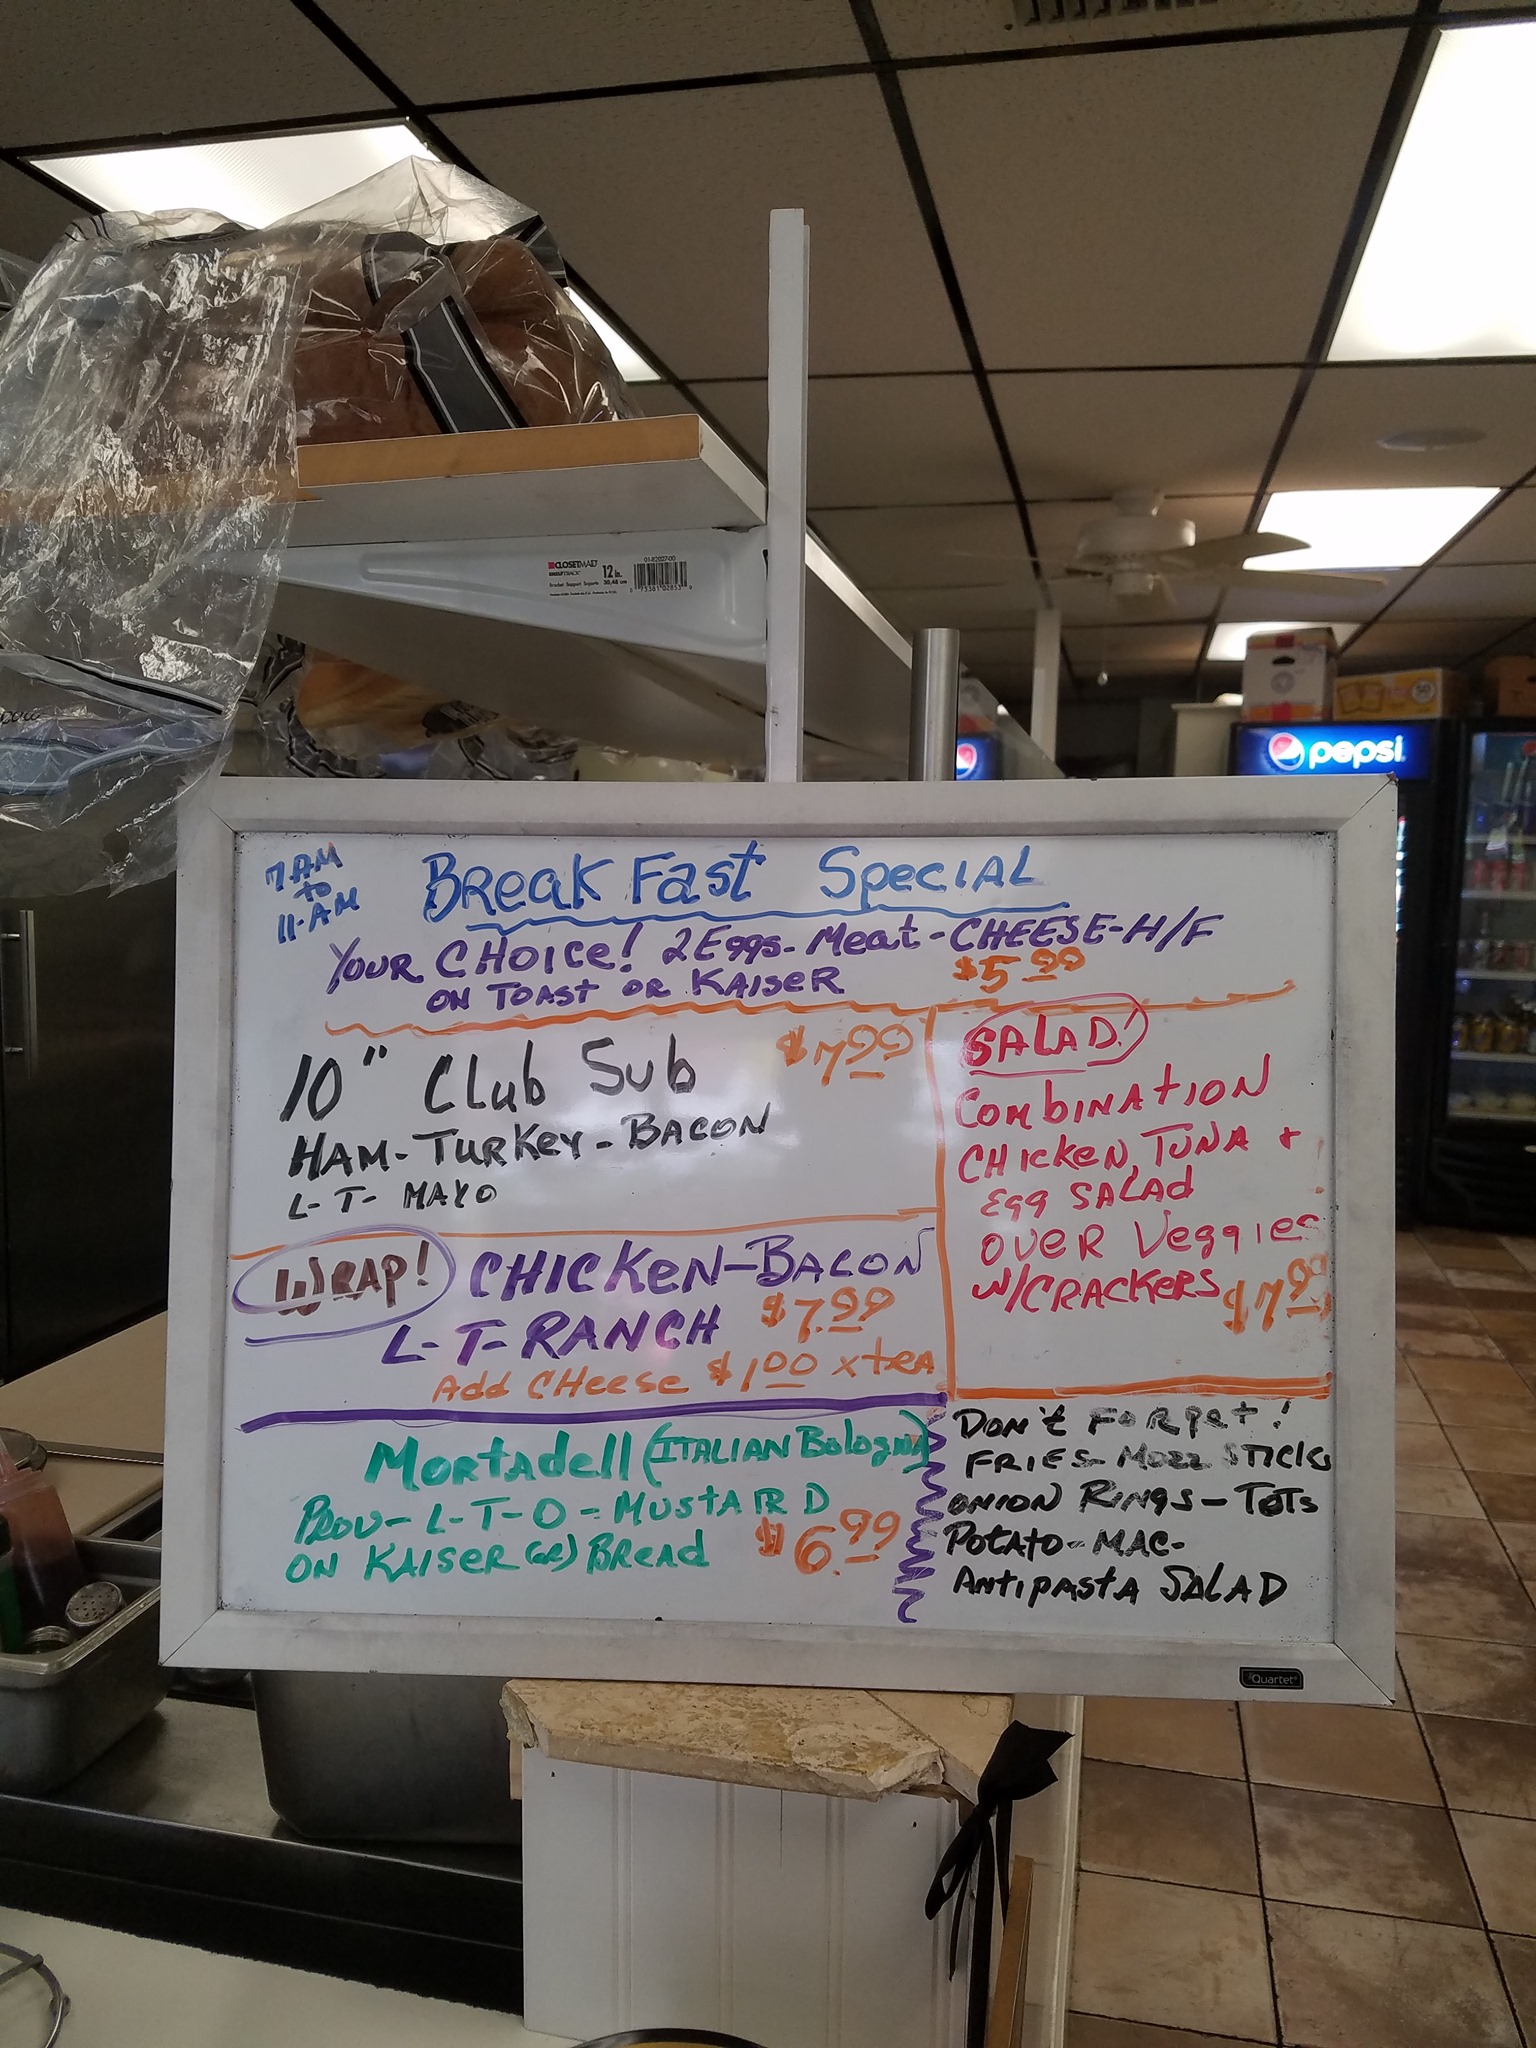 CLOSETMAID
12 in.
30,48 cm
01-82027-00
pepsi
7 AM
to
11-AM
BreakFast Special
Your CHOICe! 2 Eggs - Meat - CHEESE - H/F
ON TOAST OR KAISER $5.99
10" Club Sub $7.99
HAM - TURKEY - BACON
L - T - MAYO
WRAP! CHICKEN - BACON
L - T - RANCH $7.99
Add CHeese $1.00 xtRA
Mortadell (ITALIAN Bologna)
Prov - L - T - O - MUSTARD
ON KAISER (or) BRead $6.99
SALAD!
COMbINATION
CHICKEN, TUNA +
Egg SALAD
OVER Veggies
W/CRACKERS $7.99
DON't FORget!
FRIES - MOZZ STICKS
ONION RINGS - TOTS
POTATO - MAC -
ANTIPASTA SALAD
Quartet